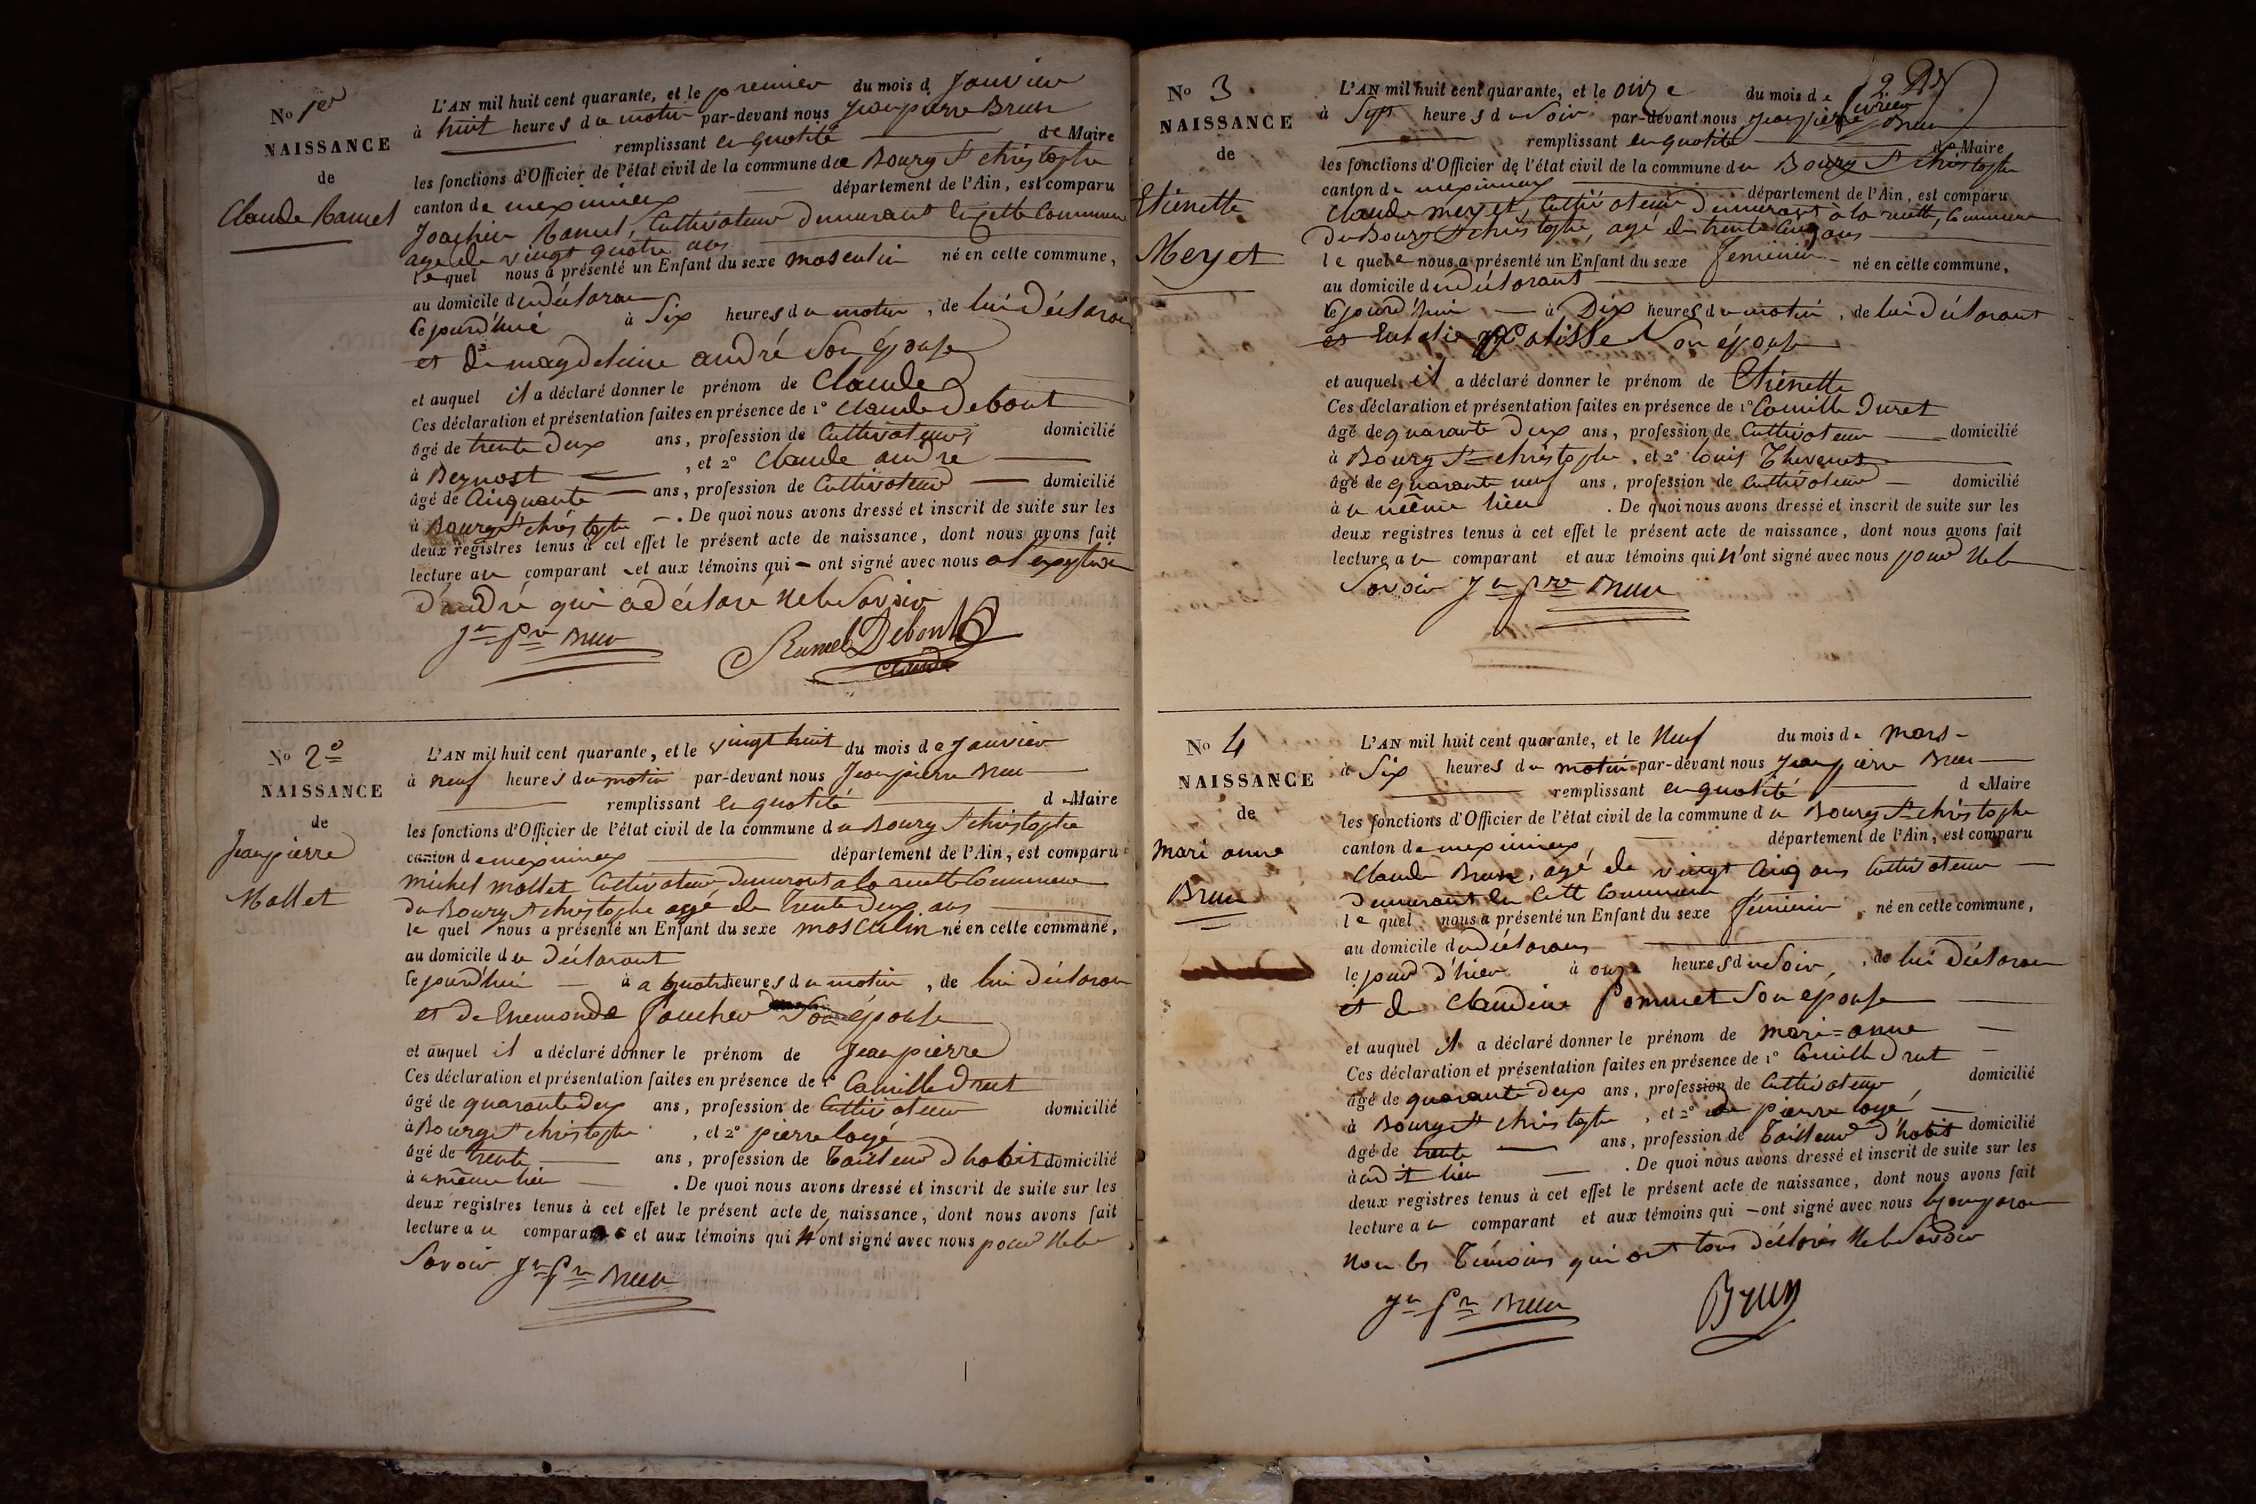 No 1er
NAISSANCE
de
Claude Ramel
L'AN mil huit cent quarante, et le premier du mois d Janvier
à huit heures du matin par-devant nous Jean pierre Brun
remplissant en qualité de Maire
les fonctions d'Officier de l'état civil de la commune de Bourg St christophe
canton de meximieux département de l'Ain, est comparu
Joachim Ramel, Cultivateur demeurant en cette Commune
agé de vingt quatre ans
lequel nous a présenté un Enfant du sexe masculin né en cette commune,
au domicile du déclarant
ce jourd'hui à Six heures du matin, de lui déclarant
et de magdeleine andré Son épouse
et auquel il a déclaré donner le prénom de Claude
Ces déclaration et présentation faites en présence de 1° Claude Debout
âgé de trente deux ans, profession de Cultivateur domicilié
à Beynost, et 2° Claude andré
âgé de Cinquante ans, profession de Cultivateur domicilié
à Bourg St christophe. De quoi nous avons dressé et inscrit de suite sur les
deux registres tenus à cet effet le présent acte de naissance, dont nous avons fait
lecture au comparant et aux témoins qui ont signé avec nous
d'andré qui a déclaré ne le Savoir
Jn Pre Brun Ramel Debout
Claude
No 2e
NAISSANCE
de
Jean pierre
Mollet
L'AN mil huit cent quarante, et le vingt huit du mois de Janvier
à neuf heures du matin par-devant nous Jean pierre Brun
remplissant en qualité de Maire
les fonctions d'Officier de l'état civil de la commune du Bourg St christophe
canton de meximieux département de l'Ain, est comparu
michel mollet Cultivateur demeurant a la ruette Commune
du Bourg St christophe agé de trente deux ans
le quel nous a présenté un Enfant du sexe masculin né en cette commune,
au domicile du déclarant
ce jourd'hui à a quatre heures du matin, de lui déclarant
et de Enemonde Son épouse
et auquel il a déclaré donner le prénom de Jean pierre
Ces déclaration et présentation faites en présence de 1° Camille Druet
âgé de quarante deux ans, profession de Cultivateur domicilié
à Bourg St christophe, et 2° pierre logé
âgé de trente ans, profession de Tailleur d'habits domicilié
à u même lieu. De quoi nous avons dressé et inscrit de suite sur les
deux registres tenus à cet effet le présent acte de naissance, dont nous avons fait
lecture au comparant et aux témoins qui n'ont signé avec nous pour ne le
Savoir Jn Pre Brun
No 3
NAISSANCE
de
Etiènette
Meyet
L'AN mil huit cent quarante, et le onze du mois de fevrier
à Sept heures du Soir par-devant nous Jean pierre Brun
remplissant en qualité de Maire
les fonctions d'Officier de l'état civil de la commune du Bourg St christophe
canton de meximieux département de l'Ain, est comparu
Claude meyet, Cultivateur demeurant à la ruette, Commune
du Bourg St christophe, agé de trente Cinq ans
le quel nous a présenté un Enfant du sexe féminin né en cette commune,
au domicile du déclarant
ce jourd'hui à Dix heures du matin, de lui déclarant
Son épouse
et auquel il a déclaré donner le prénom de Etiènette
Ces déclaration et présentation faites en présence de 1° Camille Druet
âgé de quarante deux ans, profession de Cultivateur domicilié
à Bourg St christophe, et 2° louis Thevenet
âgé de quarante neuf ans, profession de Cultivateur domicilié
à u même lieu. De quoi nous avons dressé et inscrit de suite sur les
deux registres tenus à cet effet le présent acte de naissance, dont nous avons fait
lecture au comparant et aux témoins qui n'ont signé avec nous pour ne le
Savoir Jn Pre Brun
No 4
NAISSANCE
de
Mari anne
Brun
L'AN mil huit cent quarante, et le neuf du mois de mars
à Six heures du matin par-devant nous Jean pierre Brun
remplissant en qualité de Maire
les fonctions d'Officier de l'état civil de la commune du Bourg St christophe
canton de meximieux, département de l'Ain, est comparu
Claude Brun, agé de vingt Cinq ans Cultivateur
demeurant en Cette Commune
le quel nous a présenté un Enfant du sexe féminin né en cette commune,
au domicile du déclarant
le jour d'hier à onze heures du Soir, de lui déclarant
et de Claudine Pommet Son épouse
et auquel il a déclaré donner le prénom de mari=anne
Ces déclaration et présentation faites en présence de 1° Camille Druet
âgé de quarante deux ans, profession de Cultivateur domicilié
à Bourg St christophe, et 2° pierre logé
âgé de trente ans, profession de Tailleur d'habit domicilié
à u dit lieu. De quoi nous avons dressé et inscrit de suite sur les
deux registres tenus à cet effet le présent acte de naissance, dont nous avons fait
lecture au comparant et aux témoins qui ont signé avec nous le comparant
Non les Témoins qui ont tous déclarés ne le Savoir
Jn Pre Brun Brun